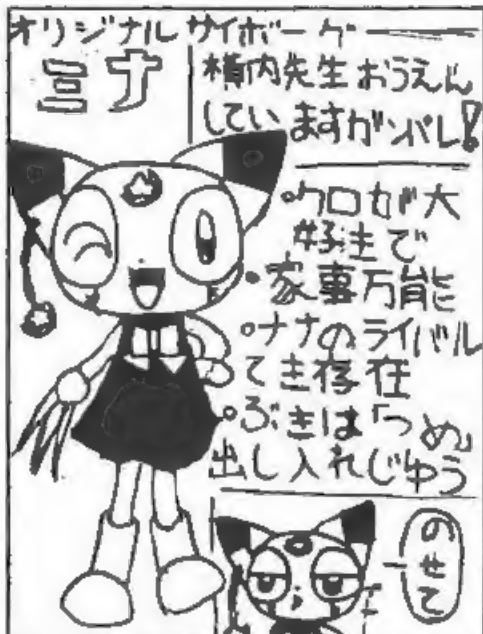 オリジナルサイボーグ
ミナ
横内先生おうえん
していますガンバレ!
・クロが大
好きで
・家事万能
・ナナのライバル
てき存在
・ぶきは「つめ」
出し入れじゆう
のせて